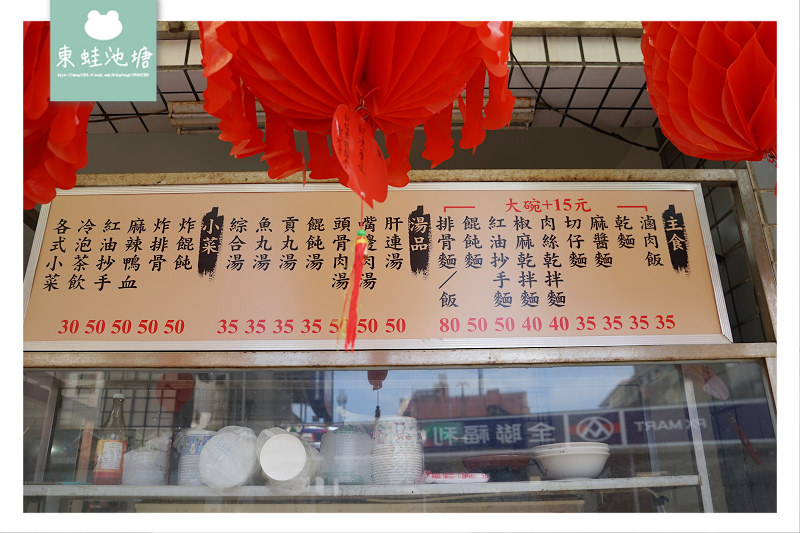 東蛙池塘
大碗+15元
主食
滷肉飯
乾麵
麻醬麵
切仔麵
肉絲乾拌麵
椒麻乾拌麵
紅油抄手麵
餛飩麵
排骨麵/飯
湯品
肝連湯
嘴邊肉湯
頭骨肉湯
餛飩湯
貢丸湯
魚丸湯
綜合湯
小菜
炸餛飩
炸排骨
麻辣鴨血
紅油抄手
冷泡茶飲
各式小菜
30 50 50 50 50
35 35 35 35 50 50 50
80 50 50 40 40 35 35 35 35
全聯福利
PX MART